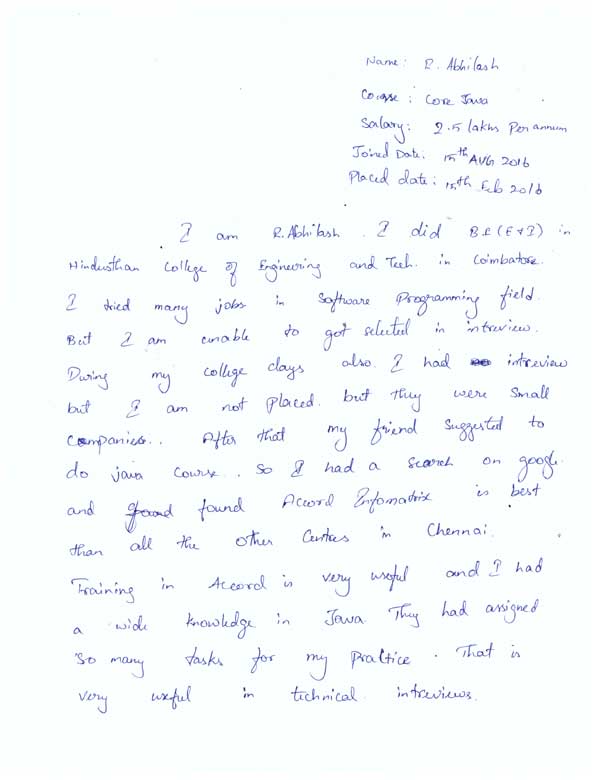 Name: R. Abhilash
Course: Core Java
Salary: 2.5 lakhs Per annum
Joined Date: 15th AUG 2016
Placed date: 15th Feb 2016
I am R.Abhilash. I did B.E (E&I) in
Hindusthan College of Engineering and Tech. in Coimbatore.
I tried many jobs in Software Programming field.
But I am unable to got selected in intreview.
During my college days also. I had intreview
but I am not Placed. but they were small
Companies.. After that my friend suggested to
do java course.. So I had a search on google.
and found Accord Infomatrix is best
than all the other Centres in Chennai.
Training in Accord is very useful and I had
a wide knowledge in Java They had assigned
So many tasks for my Practice. That is
very useful in technical intreviews.